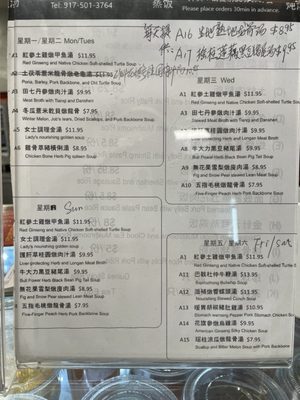 Tel. 917-501-3764
Please place orders 30min in advance.
A16 $8.95
A17 $9.95
星期一/星期二 Mon/Tues
A1 紅參土雞做甲魚湯 $11.95
Red Ginseng and Native Chicken Soft-shelled Turtle Soup
Panax, Barley, Pork Backbone, and Old Turtle Soup
A3 田七丹參燉肉汁 $9.95
Meat Broth with Tianqi and Danshen
$8.95
Winter Melon, Job's tears, Dried Scallops, and Pork Backbone Soup
A5 女士調理金湯 $11.95
Lady's nourishing golden soup
$8.95
Chicken Bone Herb Pig spleen Soup
星期三 Wed
A1 紅參土雞做甲魚湯 $11.95
Red Ginseng and Native Chicken Soft-shelled Turtle Soup
A3 田七丹參燉肉汁湯 $9.95
Stewed Meat Broth with Tianqi and Danshen
A7 護肝草桂圓做肉汁湯 $9.95
Liver-protecting Herb and Longan Meat Broth
A8 牛大力黑豆豬尾湯 $9.95
Bull Power Herb Black Bean Pig Tail Soup
A9 無花果雪梨做瘦肉湯 $8.95
Fig and Snow Pear stewed Lean Meat Soup
A10 五指毛桃做龍骨湯 $8.95
Five-Finger Peach Herb Pork Backbone Soup
星期日 Sun
紅參土雞做甲魚湯 $11.95
Red Ginseng and Native Chicken Soft-shelled Turtle Soup
女士調理金湯 $11.95
Lady's nourishing golden soup
護肝草桂圓做肉汁湯 $9.95
Liver-protecting Herb and Longan Meat Broth
牛大力黑豆豬尾湯 $9.95
Bull Power Herb Black Bean Pig Tail Soup
無花果雪梨做瘦肉湯 $8.95
Fig and Snow Pear stewed Lean Meat Soup
五指毛桃做龍骨湯 $8.95
Five-Finger Peach Herb Pork Backbone Soup
星期五/星期六 Fri/Sat
A1 紅參土雞做甲魚湯 $11.95
Red Ginseng and Native Chicken Soft-shelled Turtle S
A11 巴戟杜仲牛鞭湯 $13.95
A12 $11.95
Nourishing Stewed Conch Soup
A13 $10.95
Stomach warming Pepper Pork Stomach Chicken S
A14 花旗參做烏雞湯 $9.95
American Ginseng Silky Chicken Soup
A15 瑤柱涼瓜做龍骨湯 $9.95
Scallop and Bitter Melon Stew with Pork Backbone